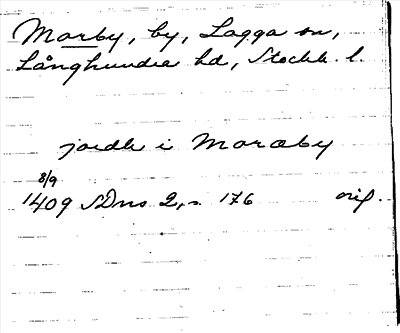 Marby, by, Lagga sn,
Långhundra hd, Stockh. l.
jordh i Moraby
8/9
1409 SDns 2, s. 176 orig.